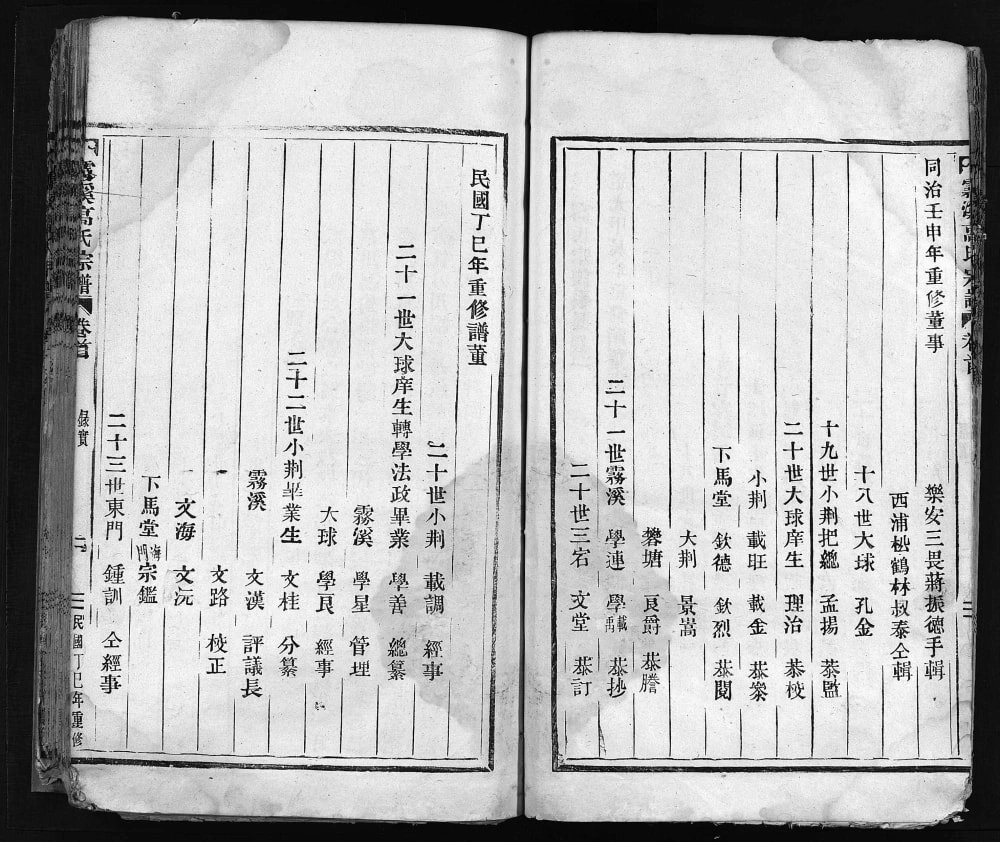 同治壬申年重修董事
樂安三畏蔣振德手輯
西浦松鶴林叔泰仝輯
十八世大球 孔金
十九世小荆把總 孟揚 恭監
二十世大球庠生 理治 恭校
小荆 載旺 載金 恭桨
下馬堂 欽德 欽烈 恭閱
大荆 景嵩
礬塘 良爵 恭謄
二十一世霧溪 學連 學載再 恭抄
二十世三宕 文堂 恭訂
民國丁巳年重修譜董
二十世小荆 載調 經事
二十一世大球庠生轉學法政畢業 學善 總纂
霧溪 學星 管理
大球 學良 經事
二十二世小荆畢業生 文桂 分纂
霧溪 文漢 評議長
文路 校正
文海 文沅
下馬堂 宗海鑑
二十三世東門 鍾訓 仝經事
霧溪高氏宗譜 卷首 錄實 二 民國丁巳年重修